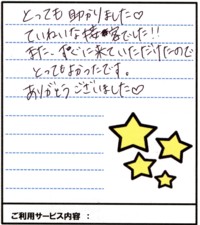 とっても助かりました♡
ていねいな接客でした!!
また、すぐに来ていただけたので
とってもよかったです。
ありがとうございました♡
ご利用サービス内容：